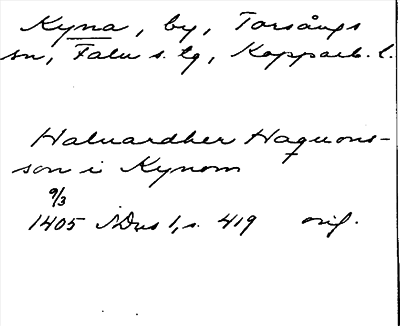 Kyna, by, Torsångs
sn, Falu s. tg, Kopparb. l.
Haluardher Haquons-
son i Kynom
9/3
1405 SDns 1, s. 419 orig.